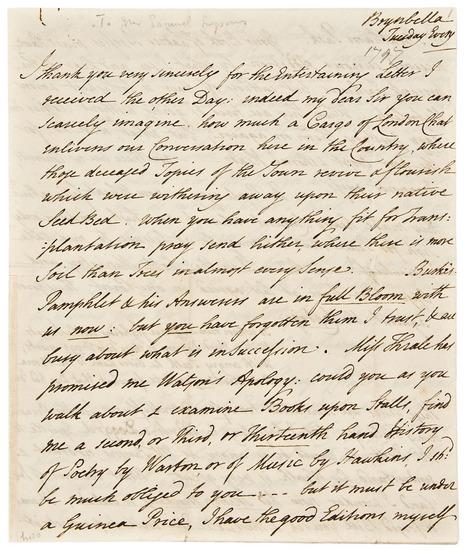 To Saml Lysons
Brynbella
Tuesday Eveng
1796
I thank you very sincerely for the Entertaining Letter I
received the other Day: indeed my dear Sir you can
scarcely imagine how much a Cargo of London Chat
enlivens our Conversation here in the Country, where
those deceased Topics of the Town revive & flourish
which were withering away upon their native
Seed Bed. when you have anything fit for Trans=
:plantation pray send hither, where there is more
Soil than Trees in almost every Sense. Burke's
Pamphlet & his Answerers are in full Bloom with
us now: but you have forgotten them I trust, & are
busy about what is in Succession. Miss Thrale has
promised me Watson's Apology: could you as you
walk about & examine Books upon Stalls, find
me a second, or Third, or thirteenth hand History
of Poetry by Warton or of Music by Hawkins I shd.
be much obliged to you --- but it must be under
a Guinea Price, I have the good Editions myself